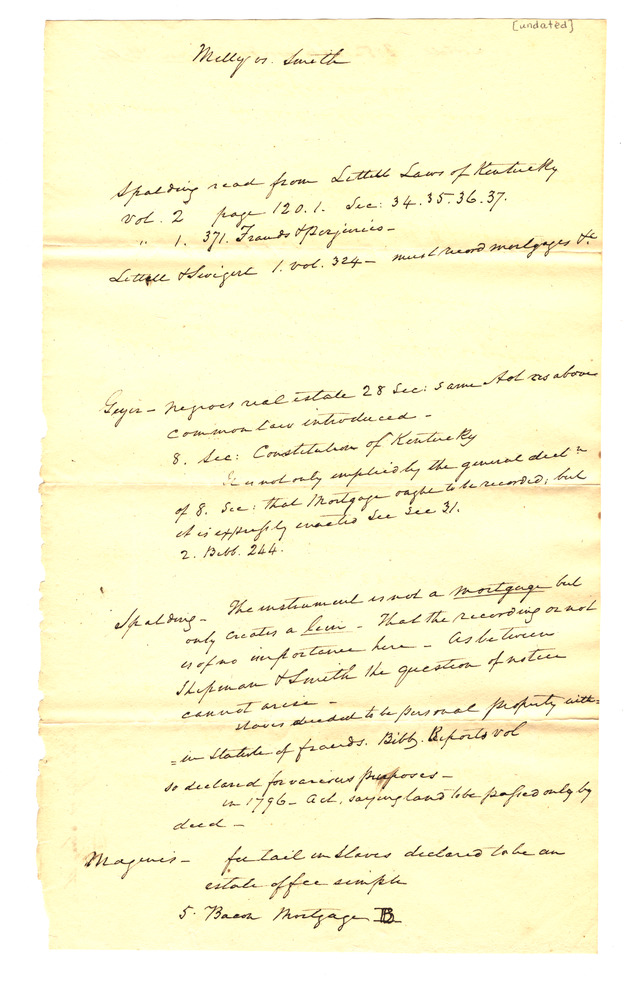 [undated]
Milly vs. Smith
Spalding read from Littell Laws of Kentucky
vol. 2 page 120.1. Sec: 34.35.36.37.
" 1. 371. Frauds & perjuries —
Littell & Swigert 1. vol. 324 — must record mortgages &c
Geyer — negroes real estate 28 Sec: same Act as above
common law introduced —
8. Sec: Constitution of Kentucky
It is not only implied by the general decl:n
of 8. Sec: that Mortgage ought to be recorded; but
it is expressly enacted See Sec 31.
2. Bibb. 244.
Spalding — The instrument is not a mortgage but
only creates a lien — That the recording or not
is of no importance here — As between
Shipman & Smith the question of notice
cannot arise —
slaves decided to be personal property with=
=in Statute of frauds. Bibb. Reports vol
so declared for various purposes —
in 1796 — Act, saying land to be passed only by
deed —
Magenis — fee tail in slaves declared to be an
estate of fee simple
5. Bacon Mortgage B